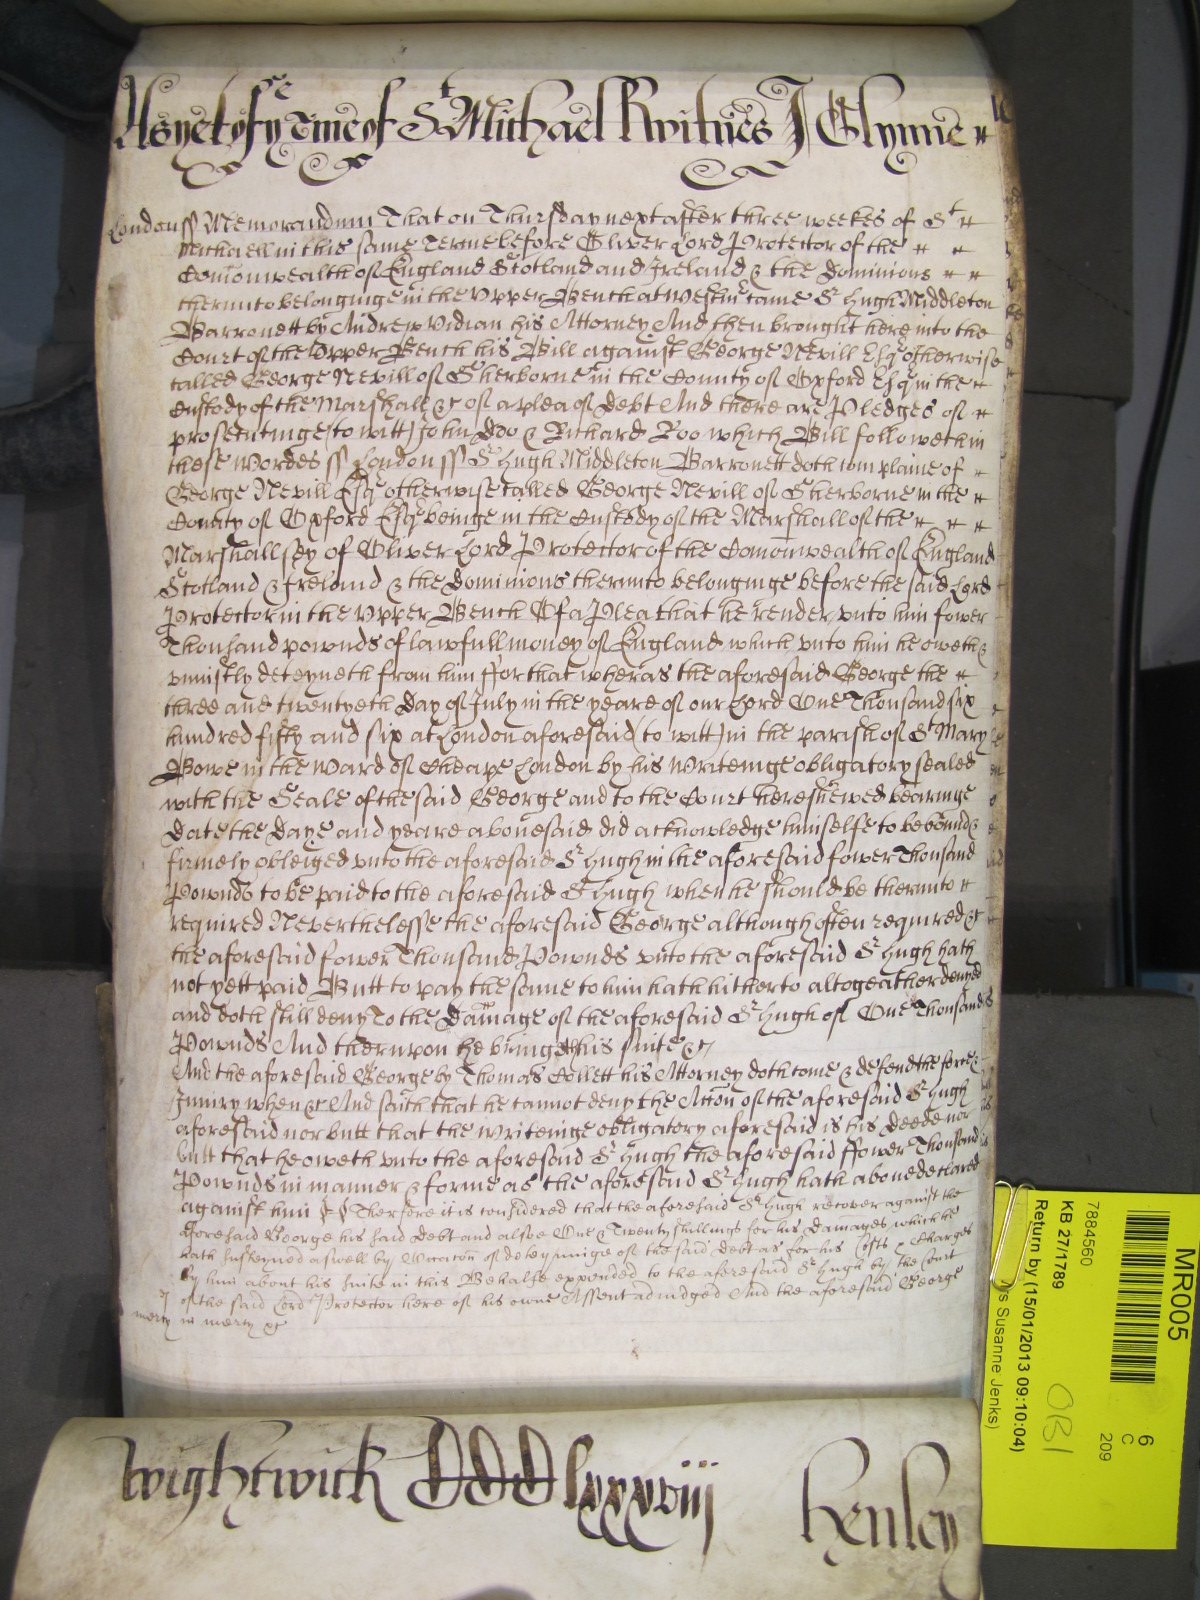 As yet of ye Terme of St Michael Witnes J Glynne
London ss Memorandum That on Thursday next after three weekes of St
Michaell in this same Terme before Oliver Lord Protector of the
Comonwealth of England Scotland and Ireland & the Dominions
therunto belonginge in the Vpper Bench at Westmr came Sr Hugh Middleton
Barronett by Andrew Vidian his Attorney And then brought here into the
Court of the Vpper Bench his Bill against George Nevill Esqr otherwise
called George Nevill of Sherborne in the County of Oxford Esqr in the
Custody of the Marshall &c of a plea of Debt And there are Pledges of
prosecutinge (to witt) John Doo & Richard Roo which Bill followeth in
these wordes ss London ss Sr Hugh Middleton Barronett doth complaine of
George Nevill Esqr otherwise called George Nevill of Sherborne in the
County of Oxford Esqr beinge in the Custody of the Marshall of the
Marshallsey of Oliver Lord Protector of the Comonwealth of England
Scotland & Ireland & the Dominions therunto belonginge before the said Lord
Protector in the Vpper Bench Of a Plea that he render vnto him fower
Thousand pownds of lawfull money of England which vnto him he oweth &
vniustly deteyneth from him ffor that wheras the aforesaid George the
three and twentyeth Day of July in the yeare of our Lord One Thousand six
hundred fifty and six at London aforesaid (to witt) in the parish of St Mary
Bowe in the Ward of Cheape London by his writeinge obligatory sealed
with the Seale of the said George and to the Court here shewed bearinge
Date the Daye and yeare abovesaid did acknowledge himselfe to be bound &
firmely obleiged vnto the aforesaid Sr Hugh in the aforesaid fower Thousand
Pownds to be paid to the aforesaid Sr Hugh when he should be therunto
required Neverthelesse the aforesaid George although often required &c
the aforesaid fower Thousand Pownds vnto the aforesaid Sr Hugh hath
not yett paid Butt to pay the same to him hath hitherto altogeather denyed
and doth still deny To the Damage of the aforesaid Sr Hugh of One Thousand
Pownds And therupon he bringeth his suite &c
And the aforesaid George by Thomas Collett his Attorney doth come & defend the force &
Iniury when &c And saith that he cannot deny the Accon of the aforesaid Sr Hugh
aforesaid nor butt that the writeinge obligatory aforesaid is his Deede nor
butt that he oweth vnto the aforesaid Sr Hugh the aforesaid ffower Thousand
Pownds in manner & forme as the aforesaid Sr Hugh hath above declared
against him Therfore it is considered that the aforesaid Sr Hugh recover against the
aforesaid George his said Debt and alsoe One & Twenty shillings for his Damages which he
hath susteyned aswell by Occacon of deteyninge of the said Debt as for his Costs & Charges
by him about his suite in this Behalfe expended to the aforesaid Sr Hugh by the Court
of the said Lord Protector here of his owne Assent adiudged And the aforesaid George
mercy in mercy &c
Wightwick DDD lxxxviij Henley
MR005
6
C
209
7884560
KB 27/1789
OB1
Return by (15/01/2013 09:10:04)
Susanne Jenks)